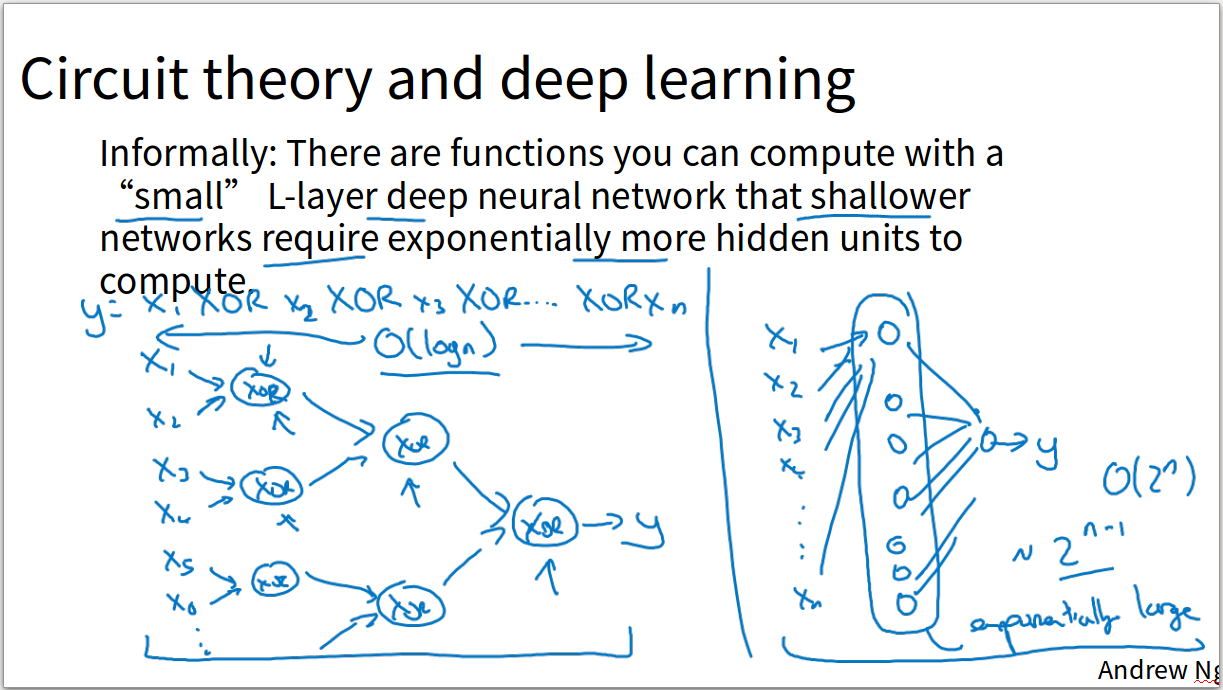 Circuit theory and deep learning
Informally: There are functions you can compute with a
“small” L-layer deep neural network that shallower
networks require exponentially more hidden units to
compute.
y= x₁ XOR x₂ XOR x₃ XOR.... XOR xₙ
O(logn)
x₁
XOR
x₂
XOR
x₃
XOR
x₄
XOR → y
x₅
XOR
x₆
XOR
x₁
x₂
x₃
x₄
xₙ
→ y
O(2ⁿ)
2ⁿ⁻¹
exponentially large
Andrew Ng